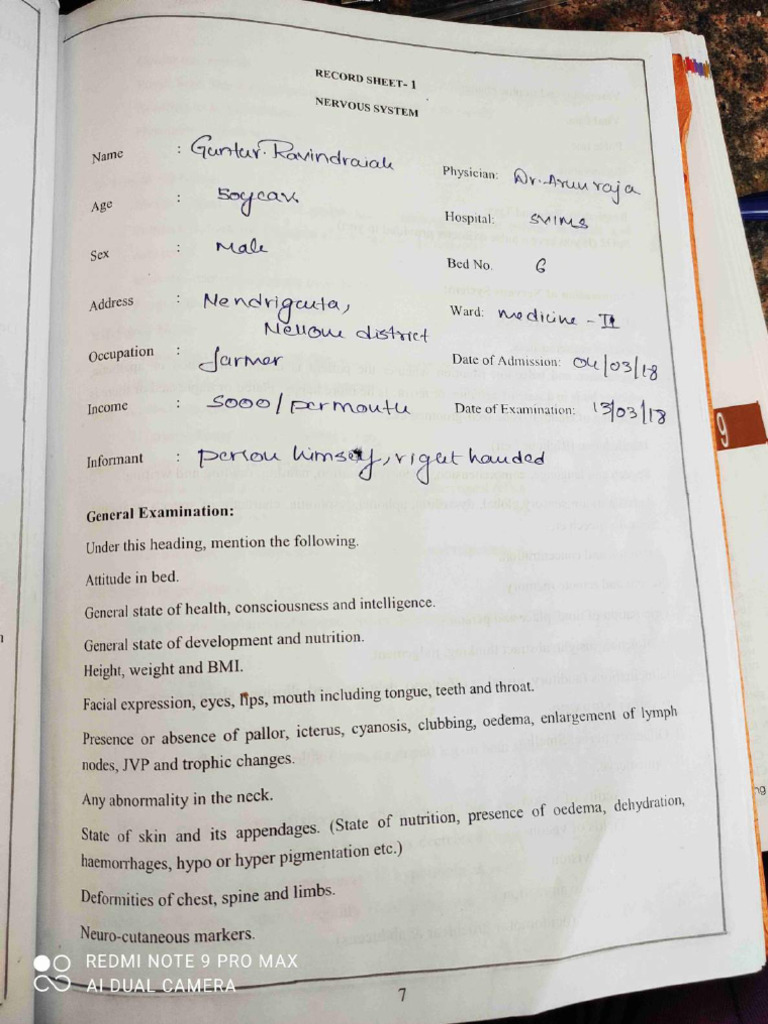 RECORD SHEET- 1
NERVOUS SYSTEM
Name : Guntur. Ravindraiah
Physician: Dr. Arun raja
Age : 50years
Hospital: SVIMS
Sex : Male
Bed No. 6
Address : Nendrigunta,
Nellore district
Ward: Medicine - II
Occupation : farmer
Date of Admission: 04/03/18
Income : 5000/permonth
Date of Examination: 13/03/18
Informant : person himself, right handed
General Examination:
Under this heading, mention the following.
Attitude in bed.
General state of health, consciousness and intelligence.
General state of development and nutrition.
Height, weight and BMI.
Facial expression, eyes, lips, mouth including tongue, teeth and throat.
Presence or absence of pallor, icterus, cyanosis, clubbing, oedema, enlargement of lymph
nodes, JVP and trophic changes.
Any abnormality in the neck.
State of skin and its appendages. (State of nutrition, presence of oedema, dehydration,
haemorrhages, hypo or hyper pigmentation etc.)
Deformities of chest, spine and limbs.
Neuro-cutaneous markers.
7
9
REDMI NOTE 9 PRO MAX
AI DUAL CAMERA